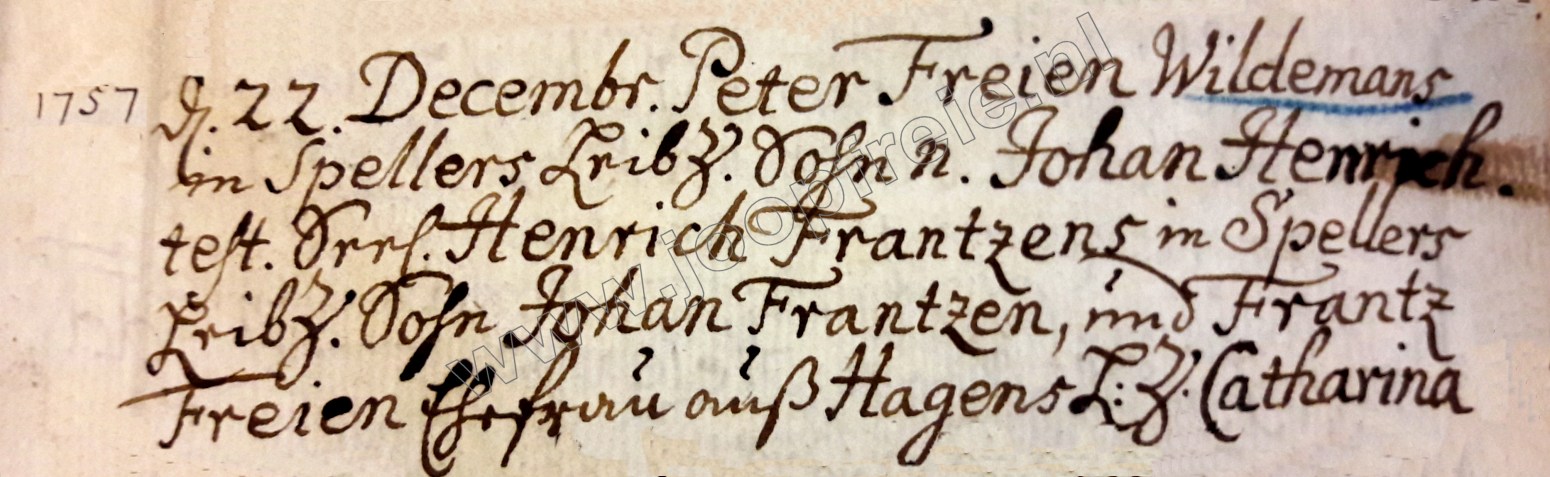 1757
d. 22. Decembr. Peter Freien Wildemans
in Spellers LeibZ. Sohn n. Johan Henrich.
test. Henrich Frantzens in Spellers
LeibZ. Sohn Johan Frantzen, und Frantz
Freien Ehefrau auß Hagens L: Z. Catharina
www.jeopfreie.nl